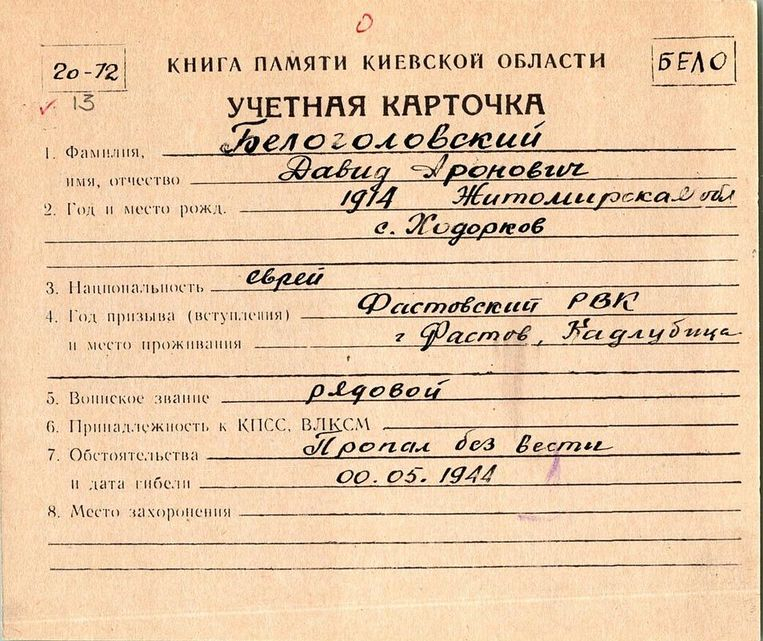 0
20-72
КНИГА ПАМЯТИ КИЕВСКОЙ ОБЛАСТИ
БЕЛО
13
УЧЕТНАЯ КАРТОЧКА
1. Фамилия, Белоголовский
имя, отчество Давид Аронович
2. Год и место рожд. 1914 Житомирская обл
с. Ходорков
3. Национальность еврей
4. Год призыва (вступления) Фастовский РВК
и место проживания г Фастов, Кадлубица
5. Воинское звание рядовой
6. Принадлежность к КПСС, ВЛКСМ
7. Обстоятельства Пропал без вести
и дата гибели 00.05.1944
8. Место захоронения